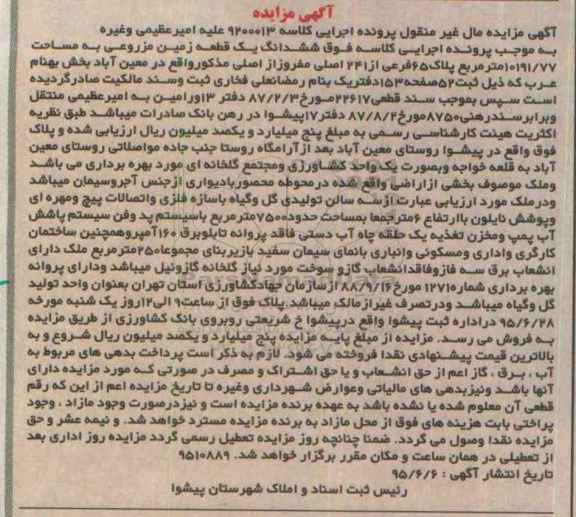 آگهی مزایده
آگهی مزایده مال غیر منقول پرونده اجرایی کلاسه ۹۲۰۰۰۱۳ علیه امیرعظیمی وغیره
به موجب پرونده اجرایی کلاسه فوق ششدانگ یک قطعه زمین مزروعی به مساحت
۱۰۱۹۱/۷۷مترمربع پلاک۶۵فرعی از۲۴۱ اصلی مفروزاز اصلی مذکورواقع در معین آباد بخش بهنام
عرب که ذیل ثبت۵۲صفحه۱۵۳دفتریک بنام رمضانعلی فخاری ثبت وسند مالکیت صادرگردیده
است سپس بموجب سند قطعی۲۲۶۱۷مورخ۸۷/۲/۳ دفتر ۱۳ورامین به امیرعظیمی منتقل
وبرابرسندرهنی۸۷۵۰مورخ۸۷/۸/۲ دفتر۱۷پیشوا در رهن بانک صادرات میباشد طبق نظریه
اکثریت هیئت کارشناسی رسمی به مبلغ پنج میلیارد و یکصد میلیون ریال ارزیابی شده و پلاک
فوق واقع در پیشوا روستای معین آباد بعد ازآرامگاه روستا جنب جاده مواصلاتی روستای معین
آباد به قلعه خواجه وبصورت یک واحد کشاورزی ومجتمع گلخانه ای مورد بهره برداری می باشد
وملک موصوف بخشی ازاراضی واقع شده درمحوطه محصوربادیواری ازجنس آجروسیمان میباشد
ودرملک مورد ارزیابی عبارت ازسه سالن تولیدی گل وگیاه باسازه فلزی واتصالات پیچ ومهره ای
وپوشش نایلون باارتفاع ۶مترجمعا بمساحت حدود۷۵۰۰مترمربع باسیستم پد وفن سیستم پاشش
آب پمپ ومخزن تغذیه یک حلقه چاه آب دستی فاقد پروانه تابلوبرق ۱۶۰آمپروهمچنین ساختمان
کارگری واداری ومسکونی وانباری بانمای سیمان سفید بازیربنای مجموعا۲۵۰مترمربع ملک دارای
انشعاب برق سه فازوفاقدانشعاب گازو سوخت مورد نیاز گلخانه گازوئیل میباشد ودارای پروانه
بهره برداری شماره۱۲۷۱ مورخ۸۸/۹/۱۶ ازسازمان جهادکشاورزی استان تهران بعنوان واحد تولید
گل وگیاه میباشد ودرتصرف غیرازمالک میباشد.پلاک فوق از ساعت۹ الی۱۲روز یک شنبه مورخه
۹۵/۶/۲۸ دراداره ثبت پیشوا واقع درپیشوا خ شریعتی روبروی بانک کشاورزی از طریق مزایده
به فروش می رسد. مزایده از مبلغ پایه مزایده پنج میلیارد و یکصد میلیون ریال شروع و به
بالاترین قیمت پیشنهادی نقدا فروخته می شود. لازم به ذکر است پرداخت بدهی های مربوط به
آب ، برق ، گاز اعم از حق انشعاب و یا حق اشتراک و مصرف در صورتی که مورد مزایده دارای
آنها باشد ونیزبدهی های مالیاتی وعوارض شهرداری وغیره تا تاریخ مزایده اعم از این که رقم
قطعی آن معلوم شده یا نشده باشد به عهده برنده مزایده است و نیزدرصورت وجود مازاد ، وجود
پراختی بابت هزینه های فوق از محل مازاد به برنده مزایده مسترد خواهد شد. و نیمه عشر و حق
مزایده نقدا وصول می گردد. ضمنا چنانچه روز مزایده تعطیل رسمی گردد مزایده روز اداری بعد
از تعطیلی در همان ساعت و مکان مقرر برگزار خواهد شد. ۹۵۱۰۸۸۹
تاریخ انتشار آگهی : ۹۵/۶/۶
رئیس ثبت اسناد و املاک شهرستان پیشوا